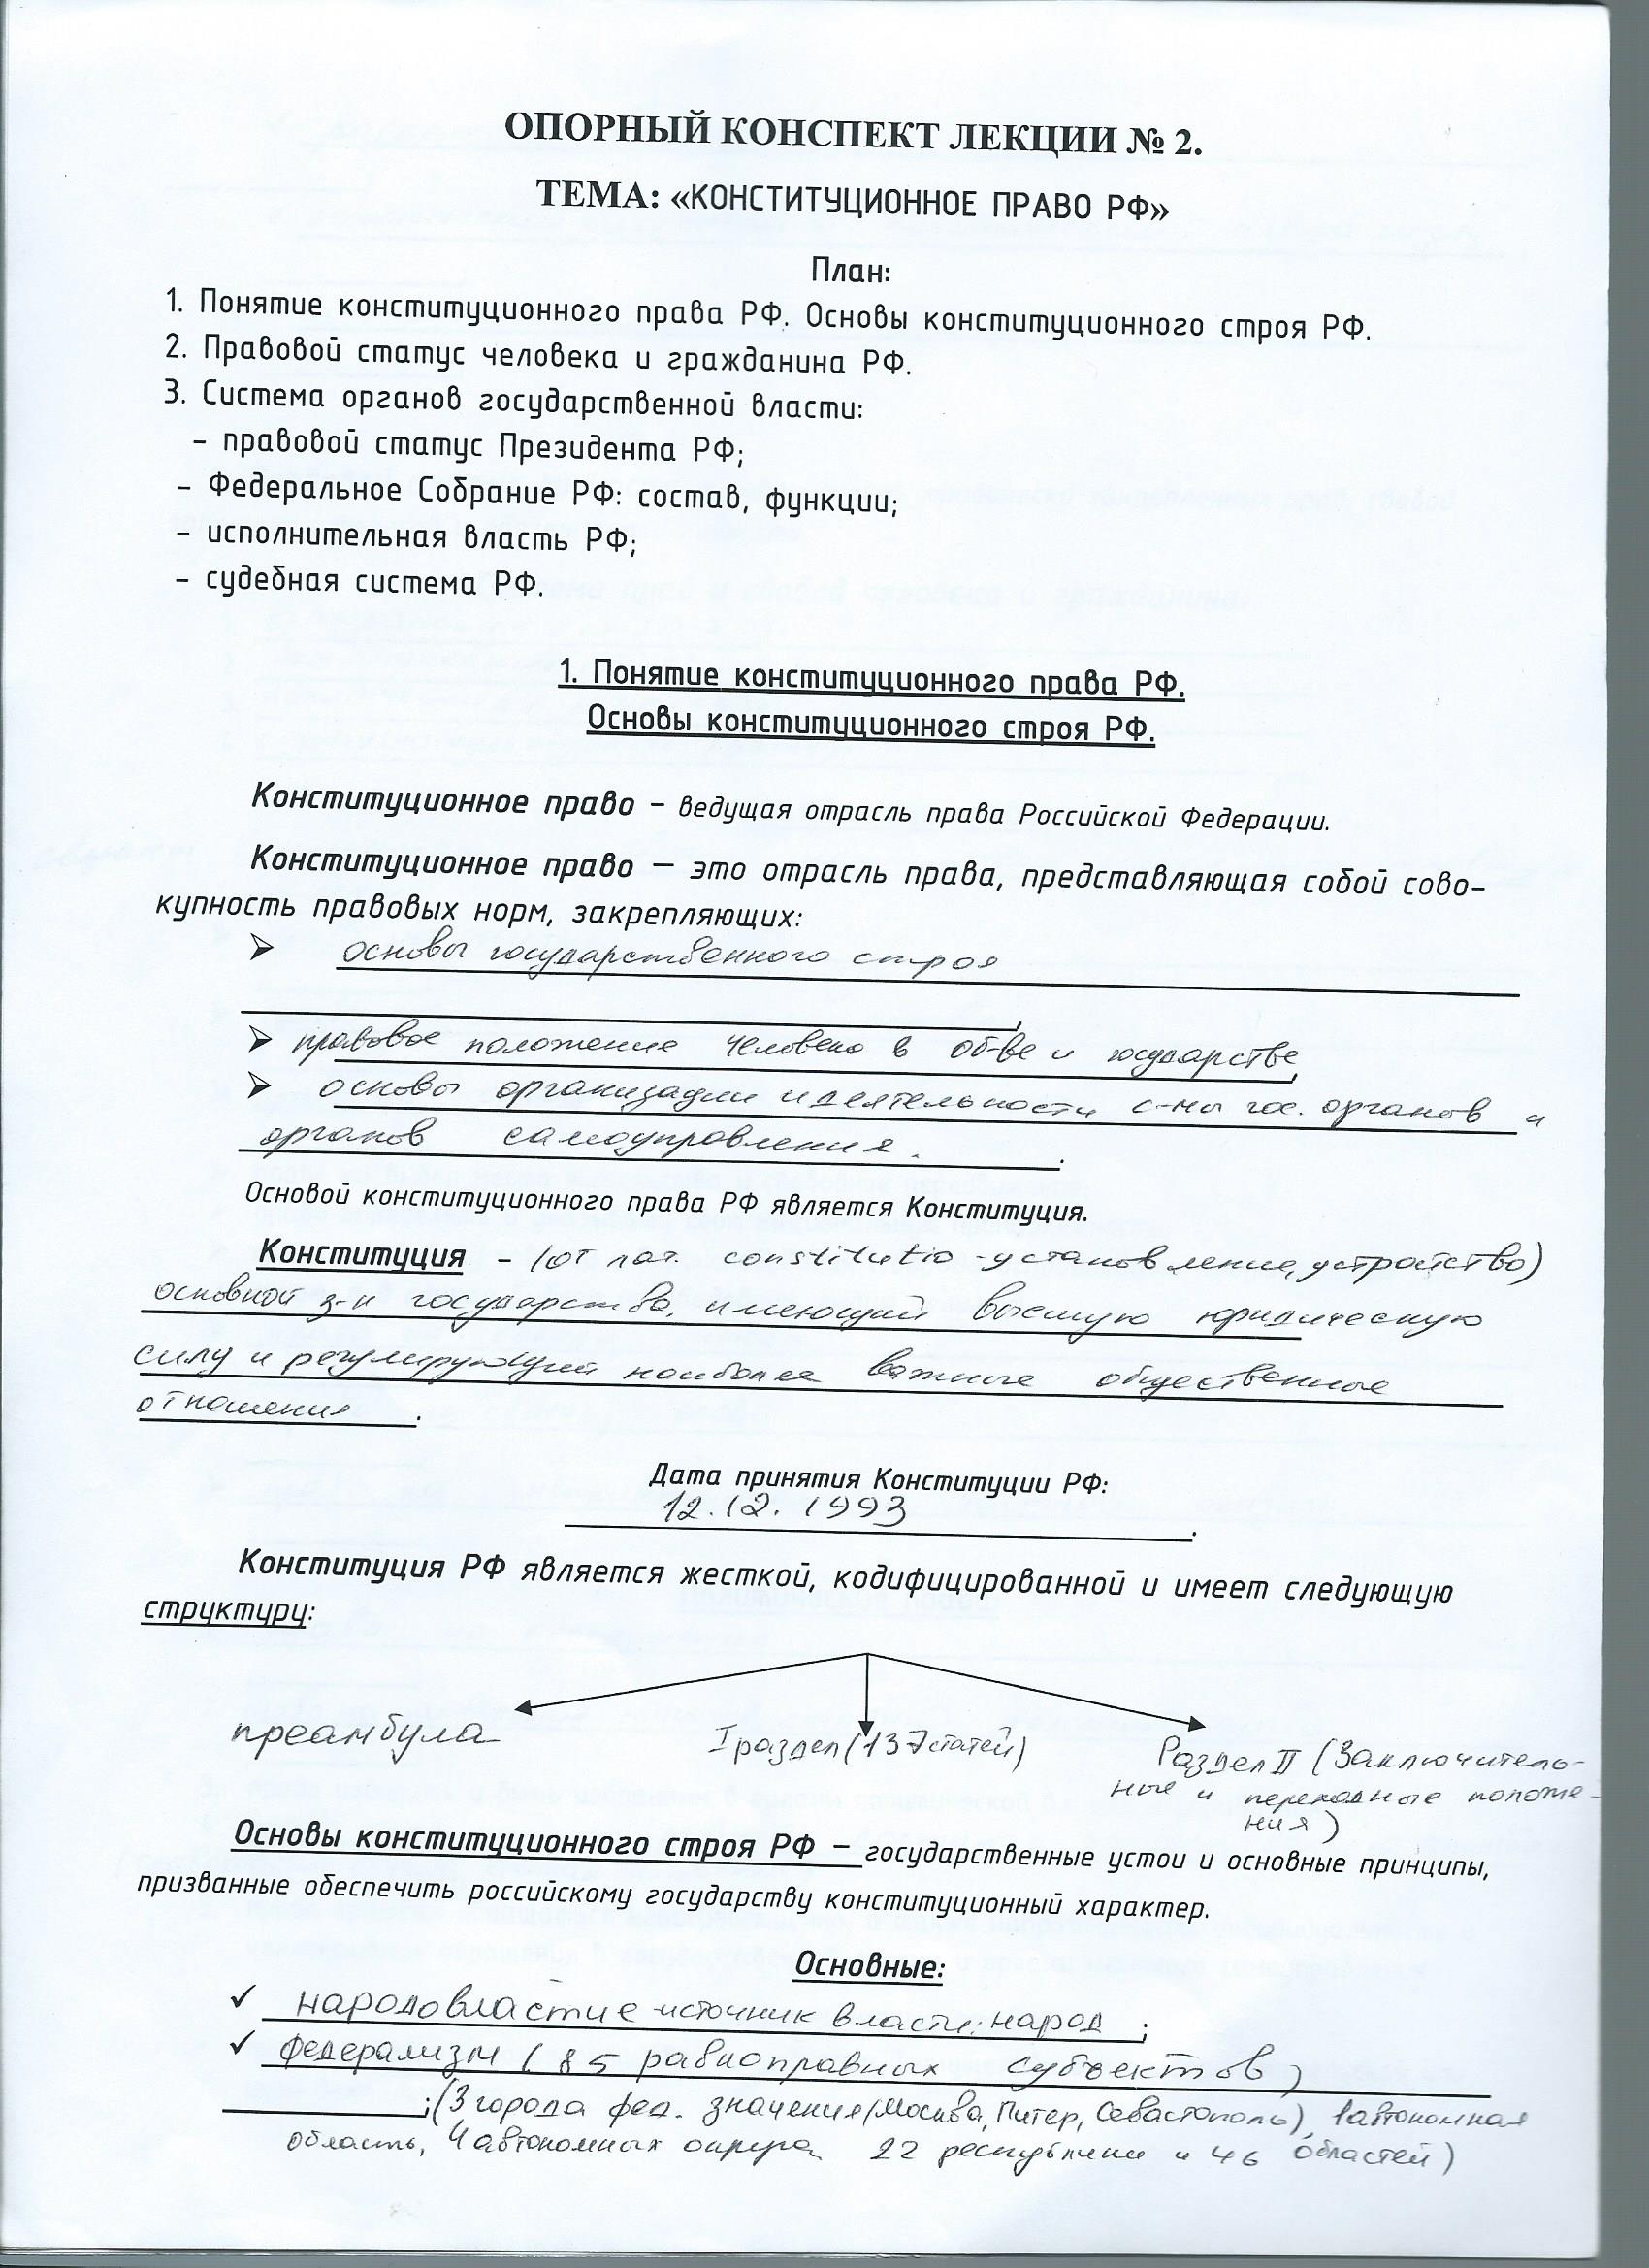 ОПОРНЫЙ КОНСПЕКТ ЛЕКЦИИ № 2.
ТЕМА: «КОНСТИТУЦИОННОЕ ПРАВО РФ»
План:
1. Понятие конституционного права РФ. Основы конституционного строя РФ.
2. Правовой статус человека и гражданина РФ.
3. Система органов государственной власти:
- правовой статус Президента РФ;
- Федеральное Собрание РФ: состав, функции;
- исполнительная власть РФ;
- судебная система РФ.
1. Понятие конституционного права РФ.
Основы конституционного строя РФ.
Конституционное право – ведущая отрасль права Российской Федерации.
Конституционное право – это отрасль права, представляющая собой сово-
купность правовых норм, закрепляющих:
➢ основы государственного строя
,
➢ правовое положение человека в об-ве и государстве,
➢ основы организации и деятельности с-мы гос. органов и
органов самоуправления.
Основой конституционного права РФ является Конституция.
Конституция - (от лат. constitutio - установление, устройство)
основной з-н государства, имеющий высшую юридическую
силу и регулирующий наиболее важные общественные
отношения.
Дата принятия Конституции РФ:
12.12.1993.
Конституция РФ является жесткой, кодифицированной и имеет следующую
структуру:
преамбула I раздел (137 статей) Раздел II (Заключитель-
ные и переходные положе-
ния)
Основы конституционного строя РФ – государственные устои и основные принципы,
призванные обеспечить российскому государству конституционный характер.
Основные:
✓ народовластие - источник власти: народ ;
✓ федерализм (85 равноправных субъектов)
; (3 города фед. значения (Москва, Питер, Севастополь), 1 автономная
область, 4 автономных округа 22 республики и 46 областей)